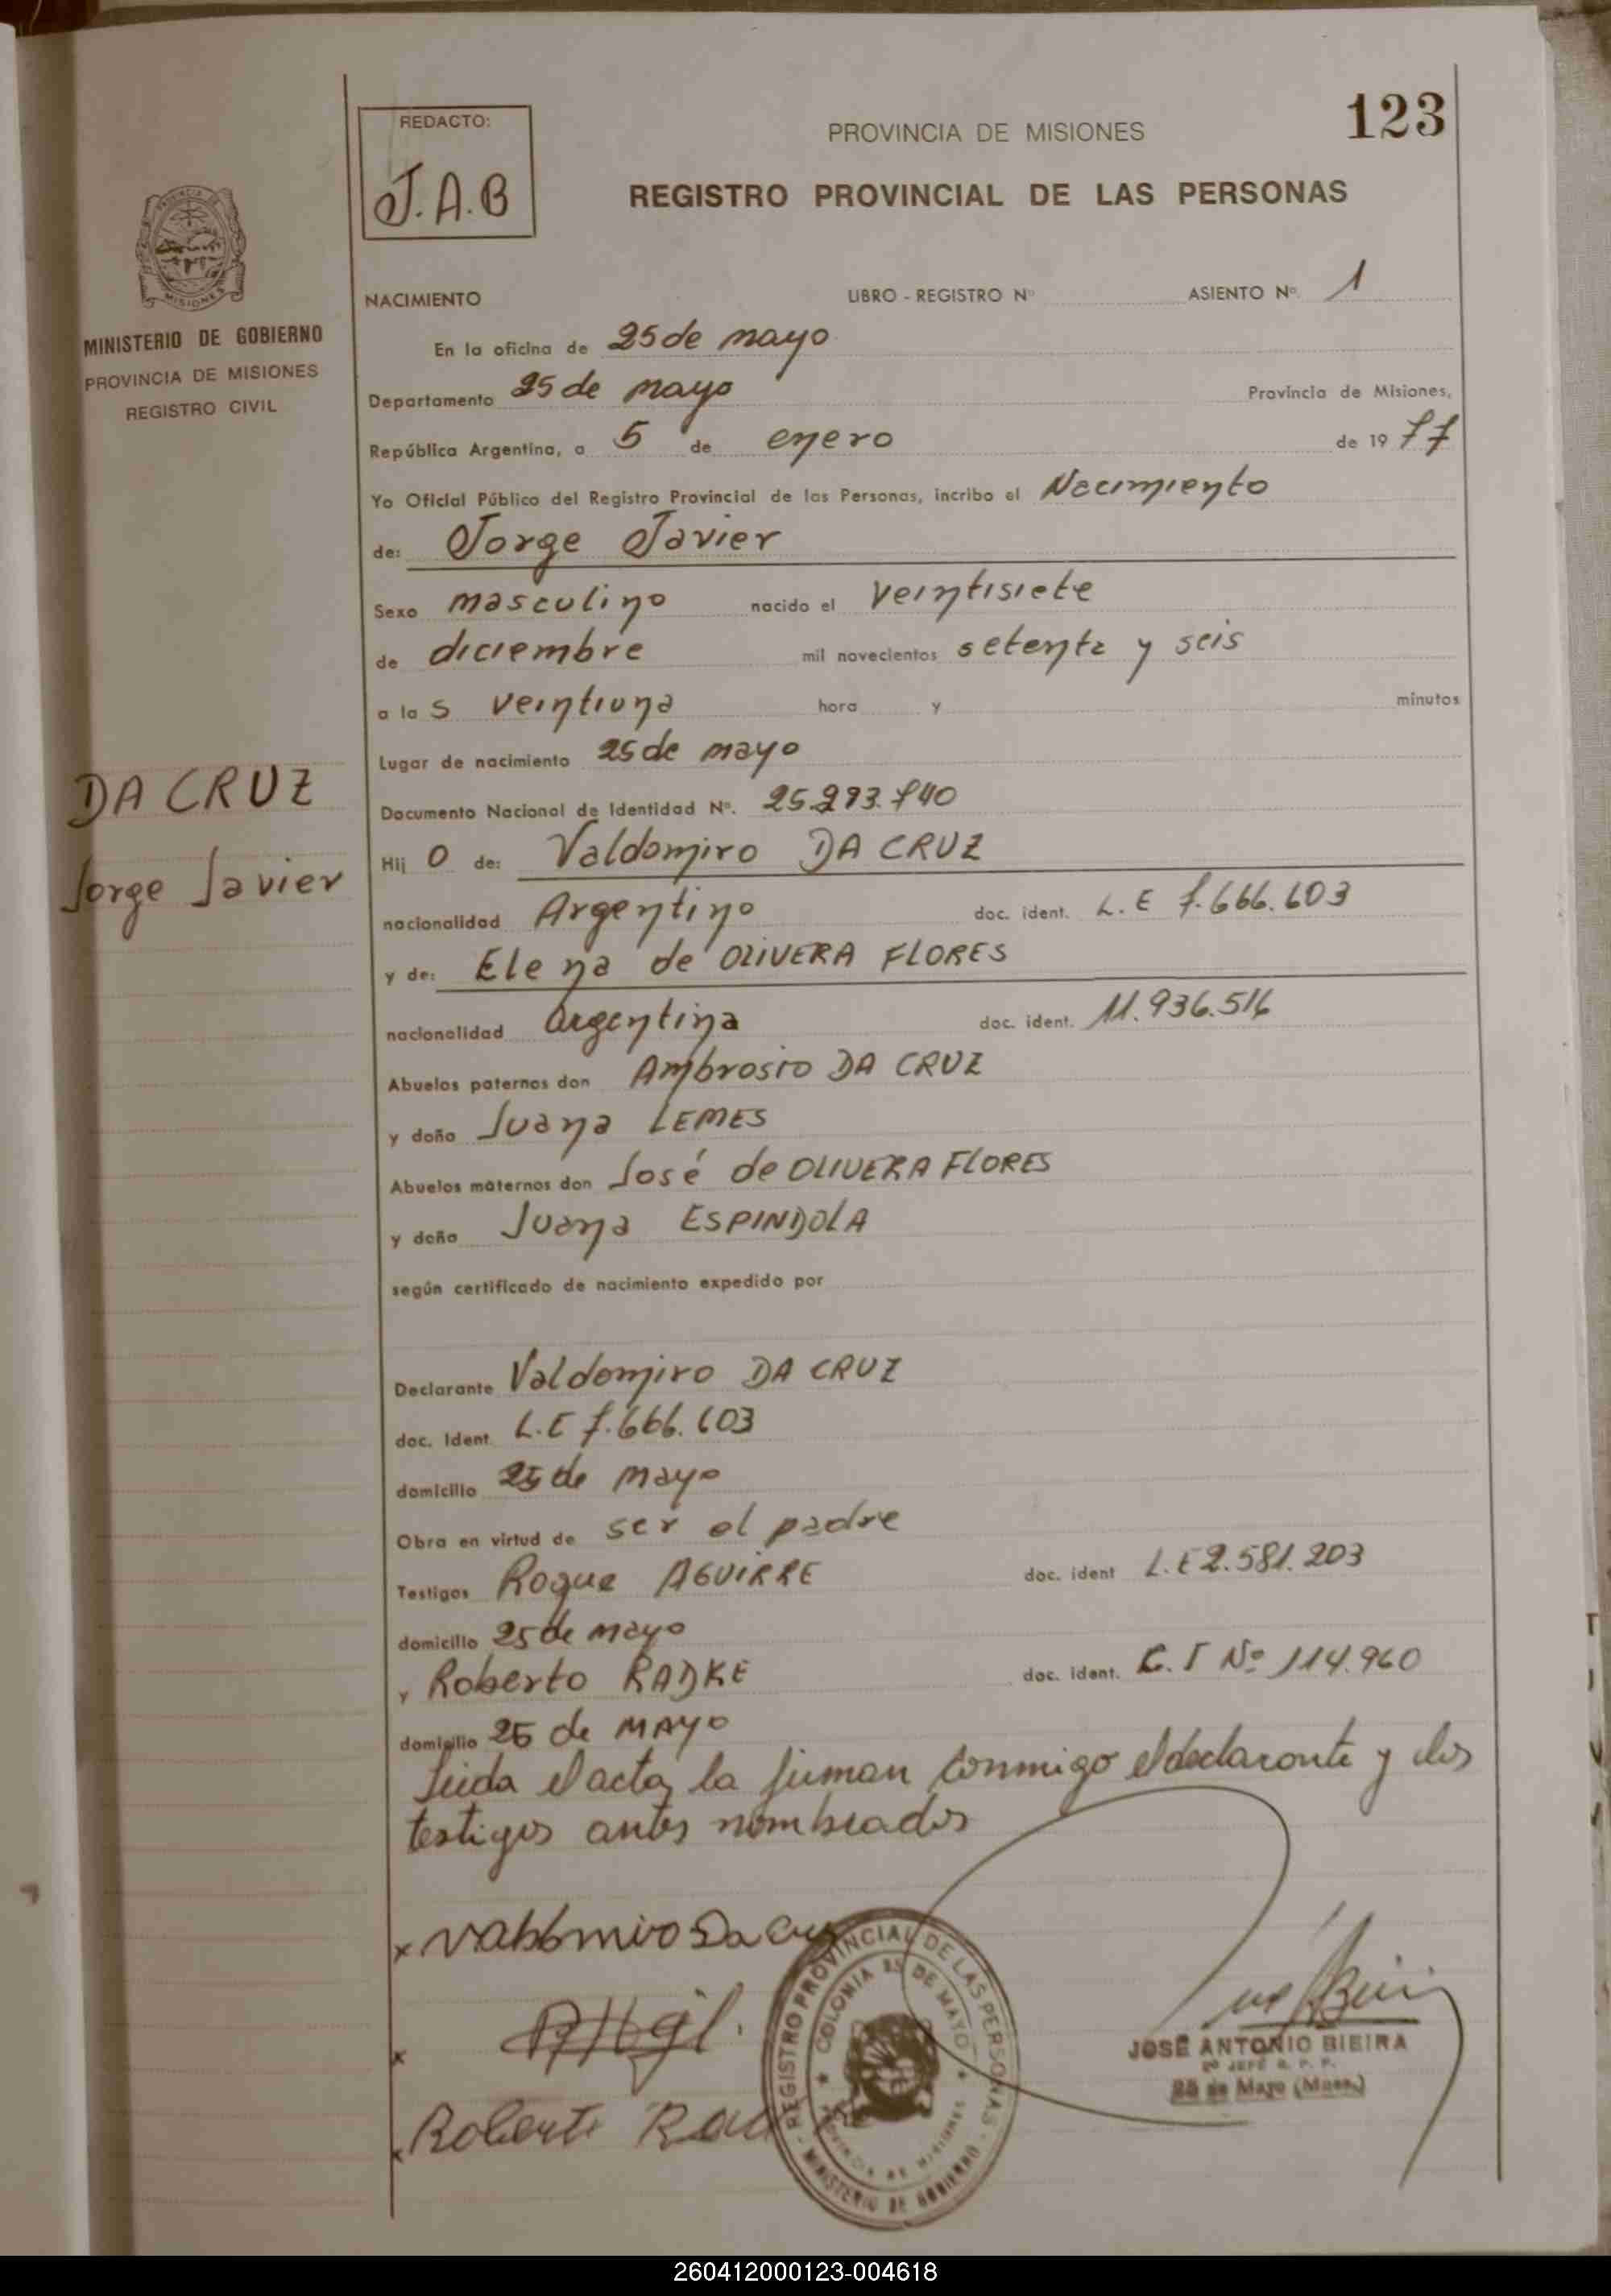 123
REDACTO:
J.A.B
PROVINCIA DE MISIONES
REGISTRO PROVINCIAL DE LAS PERSONAS
MISIONES
MINISTERIO DE GOBIERNO
PROVINCIA DE MISIONES
REGISTRO CIVIL
NACIMIENTO LIBRO - REGISTRO Nº ASIENTO Nº. 1
En la oficina de 25 de mayo
Departamento 25 de mayo Provincia de Misiones,
República Argentina, a 5 de enero de 1977
Yo Oficial Público del Registro Provincial de las Personas, incribo el Nacimiento
de: Jorge Javier
Sexo masculino nacido el veintisiete
de diciembre mil novecientos setenta y seis
a las veintiuna hora y minutos
Lugar de nacimiento 25 de mayo
DA CRUZ
Jorge Javier
Documento Nacional de Identidad Nº. 25.293.740
Hijo de: Valdomiro DA CRUZ
nacionalidad Argentino doc. ident. L.E 7.666.603
y de: Elena de OLIVERA FLORES
nacionalidad Argentina doc. ident. 11.936.516
Abuelos paternos don Ambrosio DA CRUZ
y doña Juana LEMES
Abuelos maternos don José de OLIVERA FLORES
y doña Juana ESPINDOLA
según certificado de nacimiento expedido por
Declarante Valdomiro DA CRUZ
doc. Ident. L.E 7.666.603
domicilio 25 de mayo
Obra en virtud de ser el padre
Testigos Roque AGUIRRE doc. ident L.E 2.581.203
domicilio 25 de mayo
y Roberto RADKE doc. ident. C.I Nº 114.960
domicilio 25 de MAYO
Leida el acta, la firman conmigo el declarante y los
testigos antes nombrados
x Valdomiro Da Cruz
x
x Roberto Rad
REGISTRO PROVINCIAL DE LAS PERSONAS - MINISTERIO DE GOBIERNO -
COLONIA 25 DE MAYO
PROVINCIA DE MISIONES
JOSÉ ANTONIO BIEIRA
25 de Mayo (Mnes.)
260412000123-004618